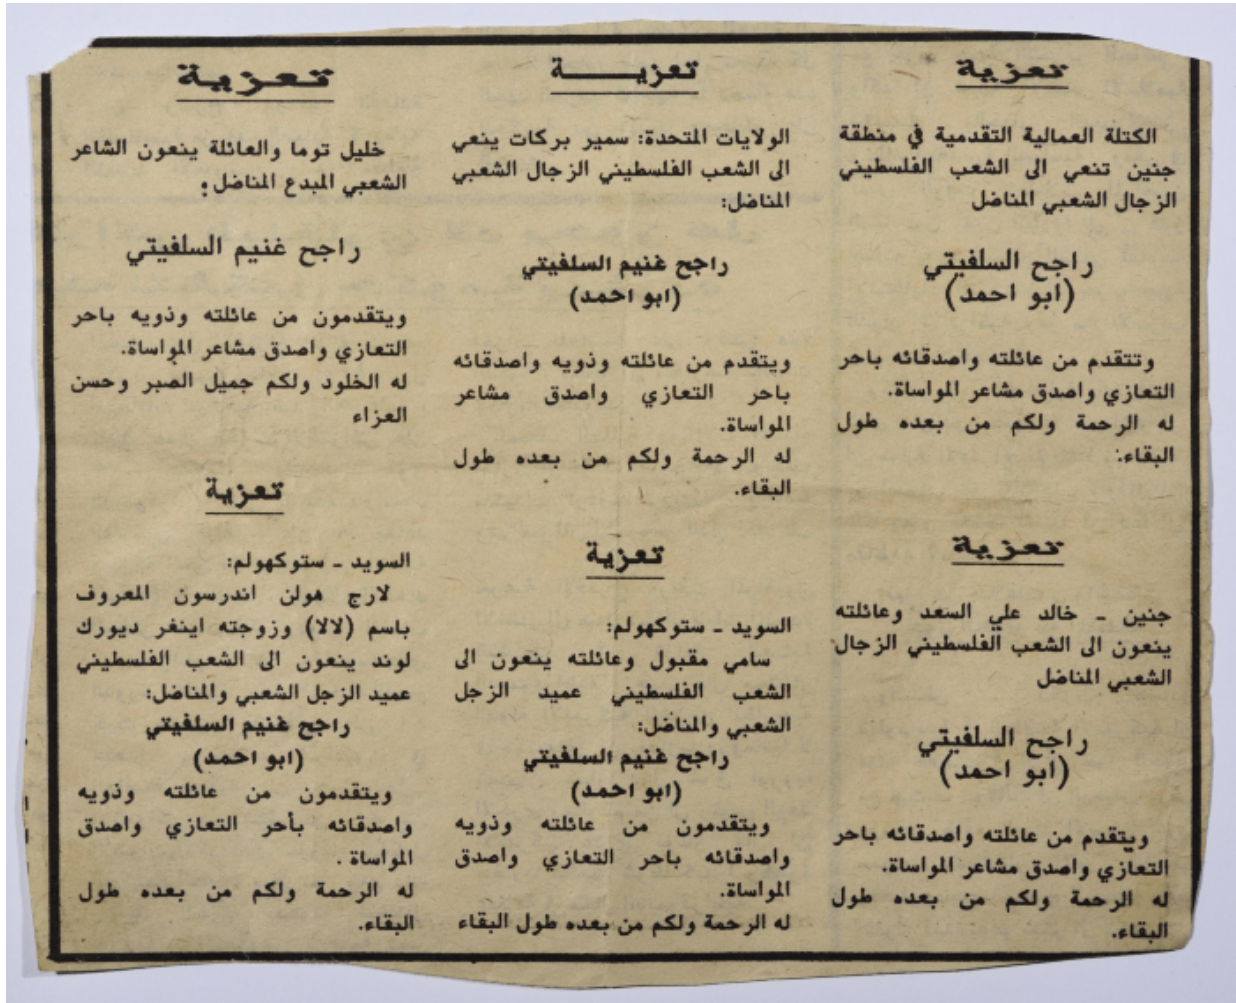 تعزية
الكتلة العمالية التقدمية في منطقة
جنين تنعي الى الشعب الفلسطيني
الزجال الشعبي المناضل
راجح السلفيتي
(ابو احمد)
وتتقدم من عائلته واصدقائه باحر
التعازي واصدق مشاعر المواساة.
له الرحمة ولكم من بعده طول
البقاء.
تعزية
جنين - خالد علي السعد وعائلته
ينعون الى الشعب الفلسطيني الزجال
الشعبي المناضل
راجح السلفيتي
(ابو احمد)
ويتقدم من عائلته واصدقائه باحر
التعازي واصدق مشاعر المواساة.
له الرحمة ولكم من بعده طول
البقاء.
تعزيـــــة
الولايات المتحدة: سمير بركات ينعي
الى الشعب الفلسطيني الزجال الشعبي
المناضل:
راجح غنيم السلفيتي
(ابو احمد)
ويتقدم من عائلته وذويه واصدقائه
باحر التعازي واصدق مشاعر
المواساة.
له الرحمة ولكم من بعده طول
البقاء.
تعزية
السويد - ستوكهولم:
سامي مقبول وعائلته ينعون الى
الشعب الفلسطيني عميد الزجل
الشعبي والمناضل:
راجح غنيم السلفيتي
(ابو احمد)
ويتقدمون من عائلته وذويه
واصدقائه باحر التعازي واصدق
المواساة.
له الرحمة ولكم من بعده طول البقاء
تعزية
خليل توما والعائلة ينعون الشاعر
الشعبي المبدع المناضل:
راجح غنيم السلفيتي
ويتقدمون من عائلته وذويه باحر
التعازي واصدق مشاعر المواساة.
له الخلود ولكم جميل الصبر وحسن
العزاء
تعزية
السويد - ستوكهولم:
لارج هولن اندرسون المعروف
باسم (لالا) وزوجته اينغر ديورك
لوند ينعون الى الشعب الفلسطيني
عميد الزجل الشعبي والمناضل:
راجح غنيم السلفيتي
(ابو احمد)
ويتقدمون من عائلته وذويه
واصدقائه بأحر التعازي واصدق
المواساة.
له الرحمة ولكم من بعده طول
البقاء.